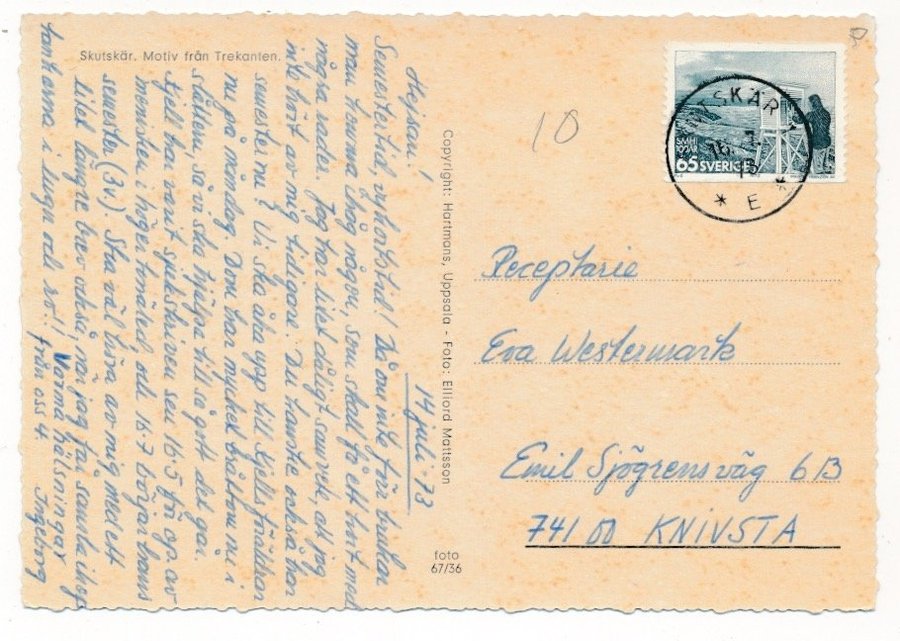 Skutskär. Motiv från Trekanten.
Hejsan! 14 juli -73
Semestertid, vykortstid! Då om inte förr brukar
man komma ihåg någon, som skall få ett kort med
några rader. Jag har läst dåligt samvek, att jag
inte hört av mig tidigare. Du kanske också har
semester nu? Vi ska åka upp till Kjells föräldrar
nu på måndag. Dom har mycket bråttom nu i
slåtten, så vi ska hjälpa till så gott det går.
Kjell har varit sjukskriven sen 16.5 för op av
menisken i höger knäled, och 16.7 börjar hans
semester (3v.). Ska väl höra av mig med ett
litet längre brev också, när jag får samla ihop
tankarna i lugn och ro!! Varma hälsningar
från oss 4. Ingeborg
Copyright: Hartmans, Uppsala - Foto: Elliord Mattsson
foto
67/36
10
SMHI
100 ÅR
65 SVERIGE
SKUTSKÄR 1
16. 7.
* E *
Receptarie
Eva Westermark
Emil Sjögrensväg 6B
741 00 KNIVSTA